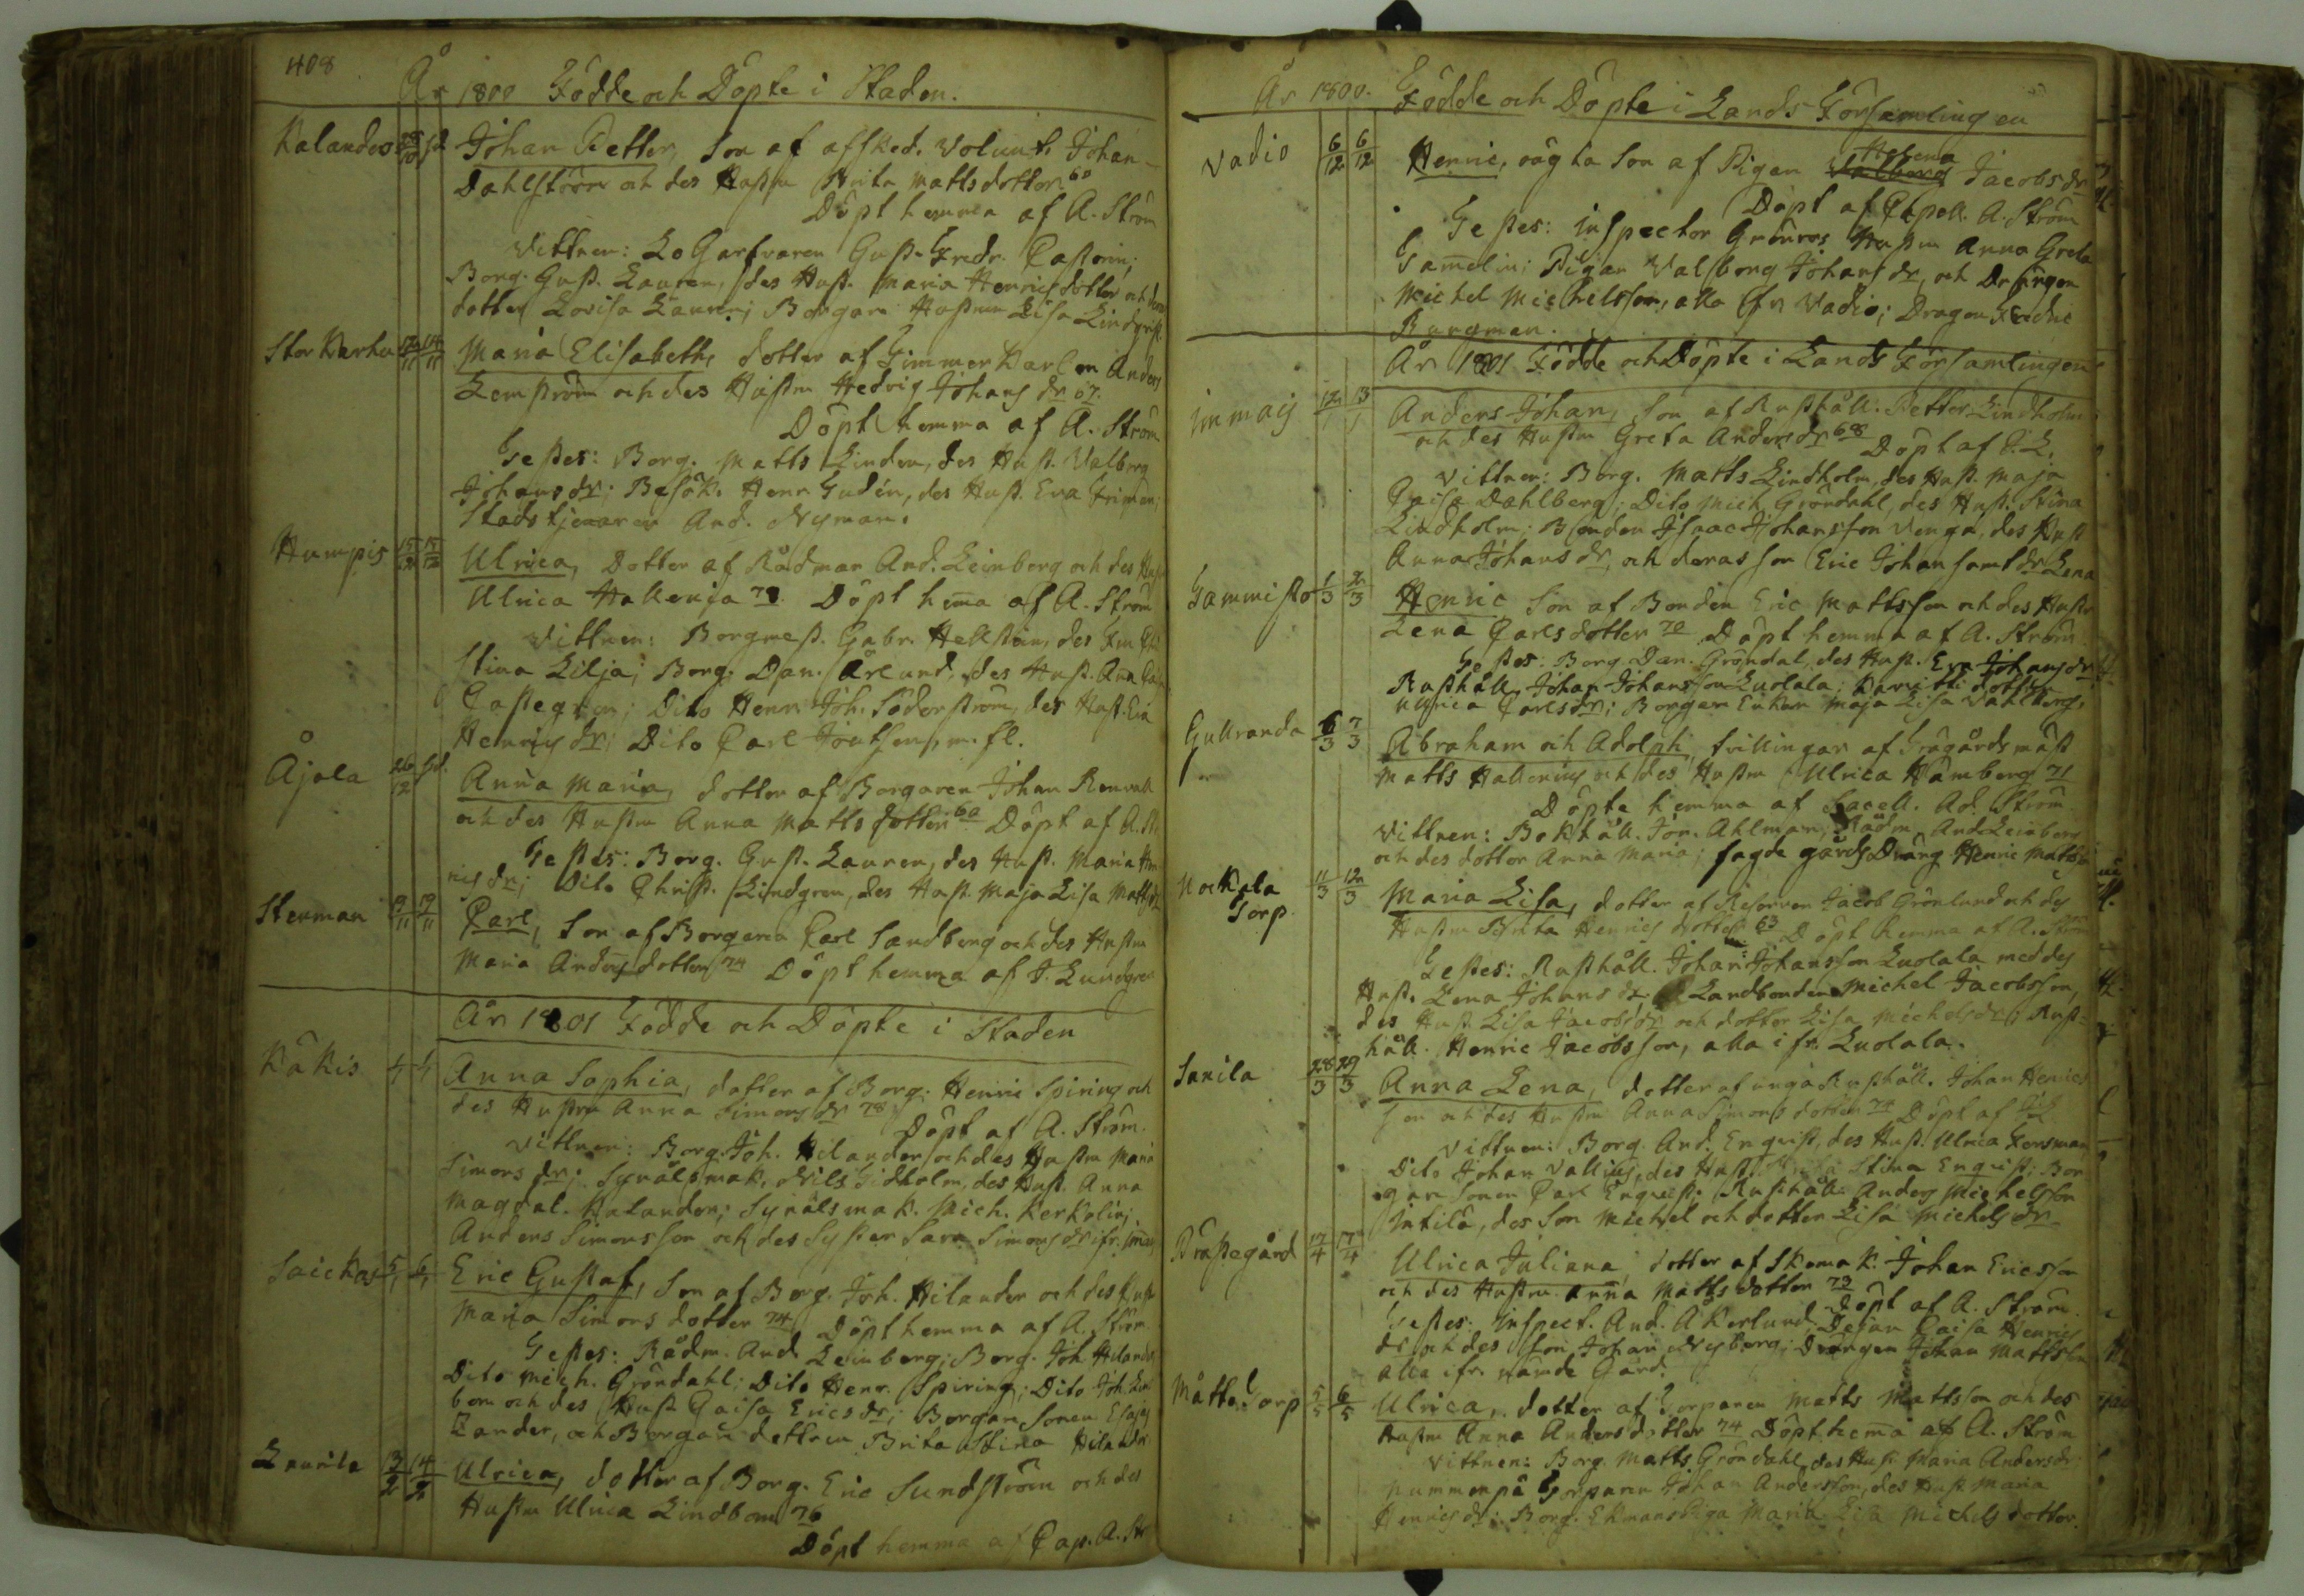 408
År 1800 Födde och Döpte i Staden.
Kalandos 28/10 sd. Johan Petter, Son af afsked. Volunt. Johan
Dahlström och des Hustru Brita Mattsdotter 60
Döpt hemma af A. Ström
Vittnen: Logarfvaren Gust. Fredr. Castorin;
Borg. Gust. Lauren, des Hust. Maria Henricsdotter och
dotter Lovisa Lauren; Borgare Hustrun Lisa Lindqvist
Stor Karhu 12/11 14/11 Maria Elisabeth, dotter af Timmerkarlen Anders
Lemström och des Hustru Hedvig Johans dr 67.
Döpt hemma af A. Ström
Testes: Borg. Matts Linden, des Hust. Valborg
Johansdr; Besök. Henr. Gudén, des Hust. Eva Friman;
Stads tjenaren And. Nyman.
Humpis 15/12 15/12 Ulrica, Dotter af Rådman And. Leinberg och des Hust
Ulrica Hallenia 71. Döpt hema af A. Ström
Vittnen: Borgmest. Gabr. Hellsten, des Fru Chri
stina Lilja; Borg. Dan. Arlund, des Hust. Anna
Castegren; Dito Henr. Joh. Söderström, des Hust. Eva
Henricsdr; Dito Carl Joutsen, m. fl.
Åjala 26/12 sd. Anna Maria, dotter af Borgaren Johan Renvall
och des Hustru Anna Mattsdotter 60 Döpt af A. St.
Testes: Borg. Gust. Lauren, des Hust. Maria Hen
ricsdr; Dito Christ. Lindgren, des Hust. Maja Lisa Mattsdr
Stenman 19/11 19/11 Carl, Son af Borgaren Carl Sandberg och des Hustru
Maria Andersdotter 74 Döpt hemma af J. Lundgren
År 1801 Födde och Döpte i Staden
Kåkis Anna Sophia, dotter af Borg. Henric Spiring och
des Hustru Anna Simonsdr 78
Döpt af A. Ström.
Vittnen: Borg. Joh. Hilander och des Hustru Maria
Simonsdr; Synålsmak. Nils Lidholm, des Hust. Anna
Magdal. Kalander; Synålsmak. Mich. Kerkolin;
Anders Simonsson och des Syster Sara Simonsdr
Saickas Eric Gustaf, Son af Borg. Joh. Hilander och des Hustr
Maria Simonsdotter 74 Döpt hemma af A. Ström
Testes: Rådm. And. Leinberg; Borg. Joh Hilander
Dito Mich. Gröndahl; Dito Henr. Spiring; Dito Joh. Lind
bom och des Hust Caisa Ericsdr; Borgare Sonen Esajas
Zander, och Borgare dottren Brita Stina Hilander
Laurila 13/2 14/2 Ulrica, dotter af Borg. Eric Sundström och des
Hustru Ulrica Lindbom 76
Döpt hemma af Cap. A. Str
År 1800. Födde och Döpte i Lands Församlingen
Vadio 6/12 6/12 Henric, oägta Son af Pigan Helena Jacobsdr
Döpt af Capell. A. Ström
Testes: Inspector Grönros Hustru Anna Greta
Gamelin; Pigan Valborg Johansdr, och Drängen
Michel Michelsson, alla fr. Vadio; Dragon Fredric
Burgman.
År 1801 Födde och Döpte i Lands Församlingen
Immais 12/1 13/1 Anders Johan, Son af Rusthåll. Petter Lindholm
och des Hustru Greta Andersdr 68 Döpt af J. L.
Vittnen: Borg. Matts Lindholm, des Hust. Maja
Caisa Dahlberg; Dito Mich. Gröndahl, des Hust. Stina
Lindholm; Bonden Isaac Johansson Venga, des Hust
Anna Johansdr, och deras Son Eric Johan samt dr Lena
Tammisto 1/3 2/3 Henric Son af Bonden Eric Mattsson och des Hustru
Lena Carlsdotter 70 Döpt hemma af A. Ström
Testes: Borg. Dan. Gröndal, des Hust. Eva Johansdr
Rusthåll. Johan Johansson Luolala;
Ulrica Carlsdr; Borgare Enkan Maja Lisa Vahlberg.
Gullranda 6/3 7/3 Abraham och Adolph, tvillingar af Trägårds mäst
Matts Hallenius och des Hustru Ulrica Hamberg 71
Döpte hemma af Sacell. Ad. Ström
Vittnen: Bokhåll. Jör. Ahlman; Rådm And Leinberg
och des dotter Anna Maria; sagde gårds Dräng Henric Mattsson
Nockala Torp 11/3 12/3 Maria Lisa, dotter af Reserven Jacob Grönlund och des
Hustru Brita Henrics dotter 63 Döpt hemma af A. Ström
Testes: Rusthåll. Johan Johansson Luolala med des
Hust. Lena Johansdr. Landbonden Michel Jacobsson,
des Hust Lisa Jacobsdr och dotter Lisa Michelsdr; Rust=
håll. Henric Jacobsson, alla ifr. Luolala.
Sarila 28/3 29/3 Anna Lena, dotter af unga Rusthåll. Johan Henrics
son och des Hustru Anna Simonsdotter 74 Döpt af
Vittnen: Borg. And. Enqvist, des Hust. Ulrica Forsman
Dito Johan Vallius, des Hust. Stina Enqvist; Bor
gare Sonen Carl Enqvist. Rusthåll. Anders Michelsson
Intilä, des Son Michel och dotter Lisa Michels dr
Prästegård 17/4 17/4 Ulrica Juliana, dotter af Skomak. Johan Ericsson
och des Hustru Anna Mattsdotter 73 Döpt af A. Ström.
Testes: Inspect. And. Åkerlund, Dejan Caisa Henrics
dr och des Son Johan Nyberg; Drängen Johan Mattsson
alla ifr. nämde Gård.
Måtto Torp 5/5 6/5 Ulrica, dotter af Torparen Matts Mattsson och des
Hustru Anna Andersdotter 74 Döpt hema af A. Ström
Vittnen: Borg. Matts Gröndahl, des Hust. Maria Andersdr
Torparen Johan Andersson, des Hust Maria
Henricsdr; Borg. Ekmans Piga Maria Lisa Michelsdotter.